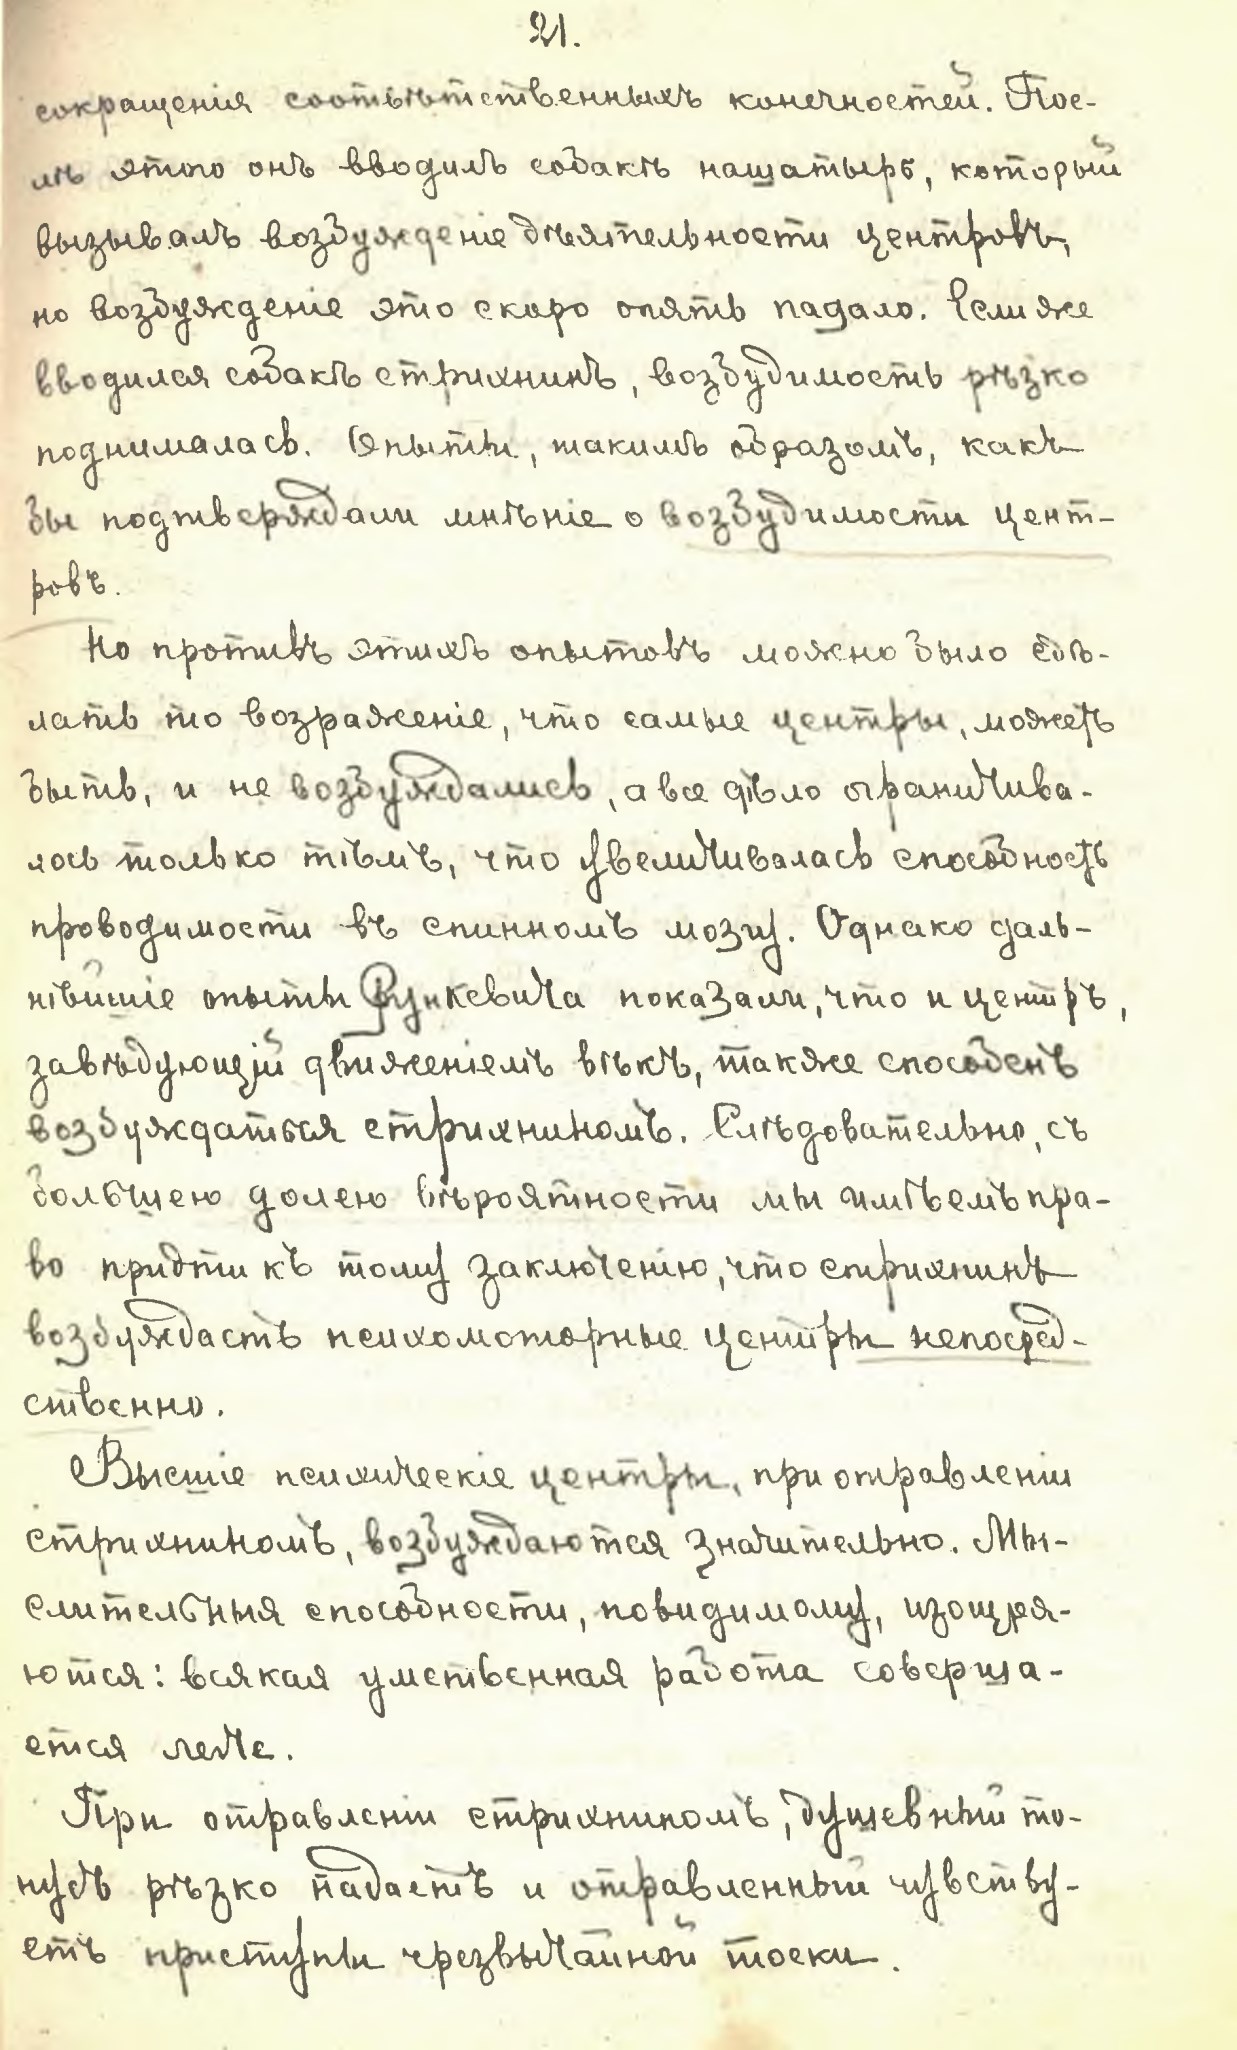 21.
сокращенія соотвѣтственныхъ конечностей. Пос-
лѣ этого онъ вводилъ собакѣ нашатырь, который
вызывалъ возбужденіе дѣятельности центровъ,
но возбужденіе это скоро опять падало. Если же
вводился собакѣ стрихнинъ, возбудимость рѣзко
поднималась. Опыты, такимъ образомъ, какъ
бы подтверждали мнѣніе о возбудимости цент-
ровъ.
Но противъ этихъ опытовъ можно было сдѣ-
лать то возраженіе, что самые центры, можетъ
быть, и не возбуждались, а все дѣло ограничива-
лось только тѣмъ, что увеличивалась способность
проводимости въ спинномъ мозгу. Однако даль-
нѣйшіе опыты Рункевича показали, что и центръ,
завѣдующій движеніемъ вѣкъ, также способенъ
возбуждаться стрихниномъ. Слѣдовательно, съ
большею долею вѣроятности мы имѣемъ пра-
во придти къ тому заключенію, что стрихнинъ
возбуждаетъ психомоторные центры непосред-
ственно.
Высшіе психическіе центры, при отравленіи
стрихниномъ, возбуждаются значительно. Мы-
слительныя способности, повидимому, изощря-
ются: всякая умственная работа соверша-
ется легче.
При отравленіи стрихниномъ, душевный то-
нусъ рѣзко падаетъ и отравленный чувству-
етъ приступы чрезвычайной тоски.